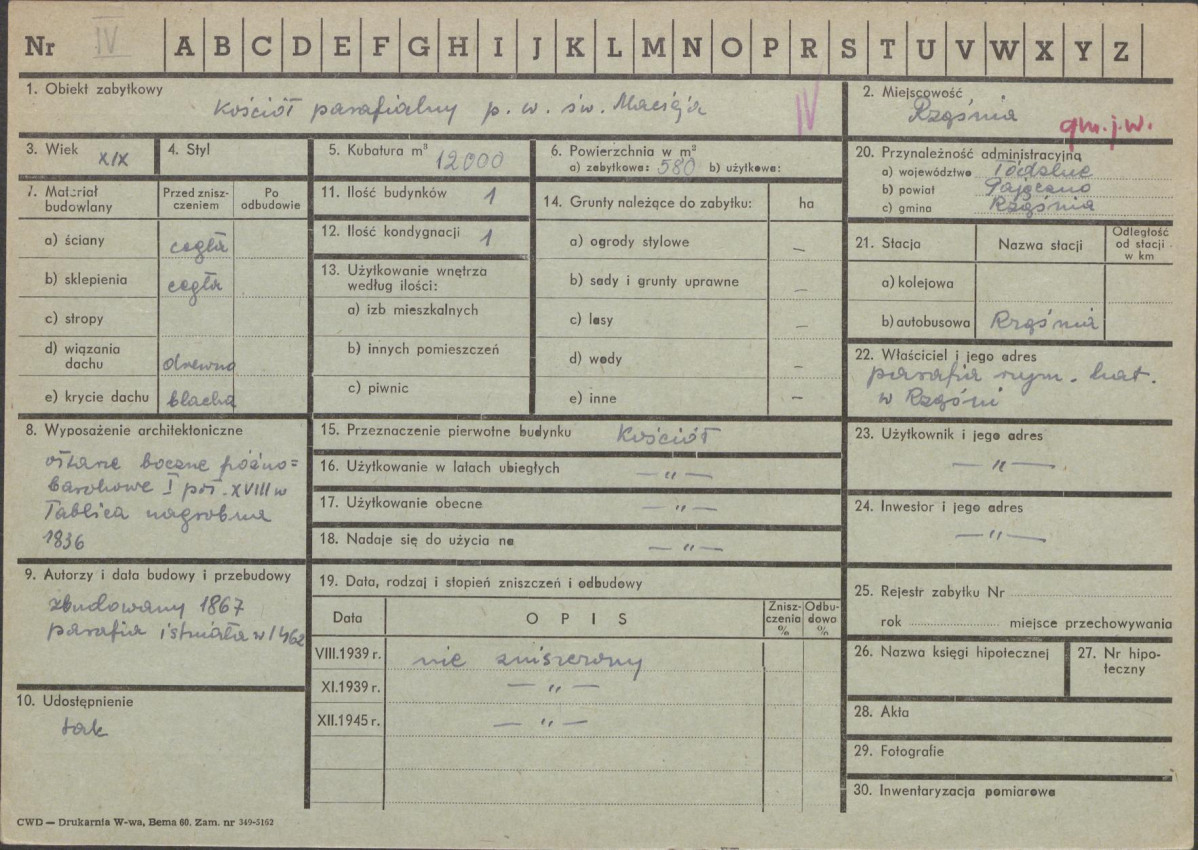 Nr IV A B C D E F G H I J K L M N O P R S T U V W X Y Z
1. Obiekt zabytkowy
Kościół parafialny p. w. św. Macieja IV
2. Miejscowość
Rząśnia
gm. j. w.
3. Wiek XIX
4. Styl
5. Kubatura m³ 12000
6. Powierzchnia w m²
a) zabytkowa: 580 b) użytkowa:
20. Przynależność administracyjna
a) województwo Łódzkie
b) powiat Pajęczno
c) gmina Rząśnia
7. Materiał budowlany
Przed znisz-
czeniem
Po
odbudowie
a) ściany cegła
b) sklepienia cegła
c) stropy
d) wiązania
dachu drewno
e) krycie dachu blacha
11. Ilość budynków 1
12. Ilość kondygnacji 1
13. Użytkowanie wnętrza
według ilości:
a) izb mieszkalnych
b) innych pomieszczeń
c) piwnic
14. Grunty należące do zabytku: ha
a) ogrody stylowe –
b) sady i grunty uprawne –
c) lasy –
d) wody –
e) inne –
21. Stacja
Nazwa stacji
Odległość
od stacji
w km
a) kolejowa
b) autobusowa Rząśnia
22. Właściciel i jego adres
parafia rzym. kat.
w Rząśni
8. Wyposażenie architektoniczne
ołtarze boczne późno=
barokowe I poł. XVIII w
Tablica nagrobna
1836
15. Przeznaczenie pierwotne budynku Kościół
16. Użytkowanie w latach ubiegłych —〃—
17. Użytkowanie obecne —〃—
18. Nadaje się do użycia na —〃—
23. Użytkownik i jego adres
—〃—
24. Inwestor i jego adres
—〃—
9. Autorzy i data budowy i przebudowy
zbudowany 1867
parafia istniała w 1462
19. Data, rodzaj i stopień zniszczeń i odbudowy
Data
O P I S
Znisz-
czenia
%
Odbu-
dowa
%
VIII.1939 r. nie zniszczony
XI.1939 r. —〃—
XII.1945 r. —〃—
25. Rejestr zabytku Nr
rok miejsce przechowywania
26. Nazwa księgi hipotecznej
27. Nr hipo-
teczny
10. Udostępnienie
tak
28. Akta
29. Fotografie
30. Inwentaryzacja pomiarowa
CWD — Drukarnia W-wa, Bema 60. Zam. nr 349-5162